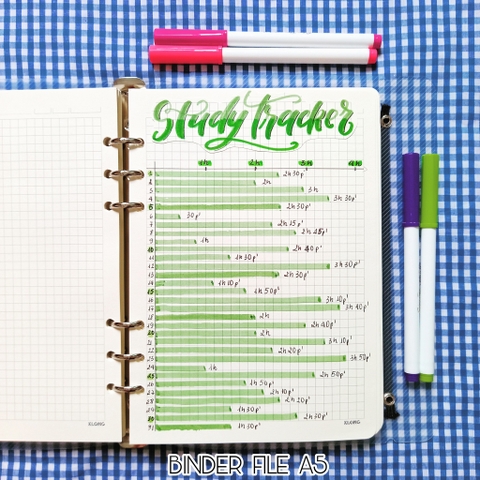 Study tracker
1h 2h 3h 4h
1 2h30p'
2 2h
3 3h
4 3h30p'
5 2h30p'
6 30p'
7 2h15p'
8 2h45p'
9 1h
10 2h40p'
11 1h30p'
12 3h30p'
13 2h30p'
14 1h10p'
15 1h50p'
16 3h10p'
17 3h40p'
18 2h
19 2h40p'
20 2h
21 3h10p'
22 2h20p'
23 3h50p'
24 1h
25 2h50p'
26 1h50p'
27 2h10p'
28 2h20p'
29 1h30p'
30 2h30p'
31 1h30p'
BINDER FILE A5